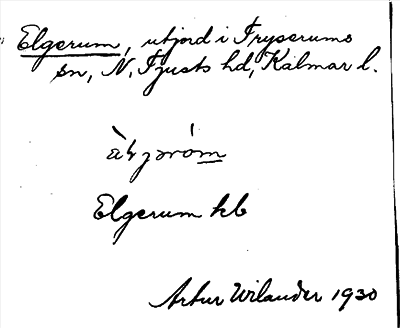 Elgerum, utjord i Tryserums
sn, N. Tjusts hd, Kalmar l.
Elgerum kb
Artur Wilander 1930